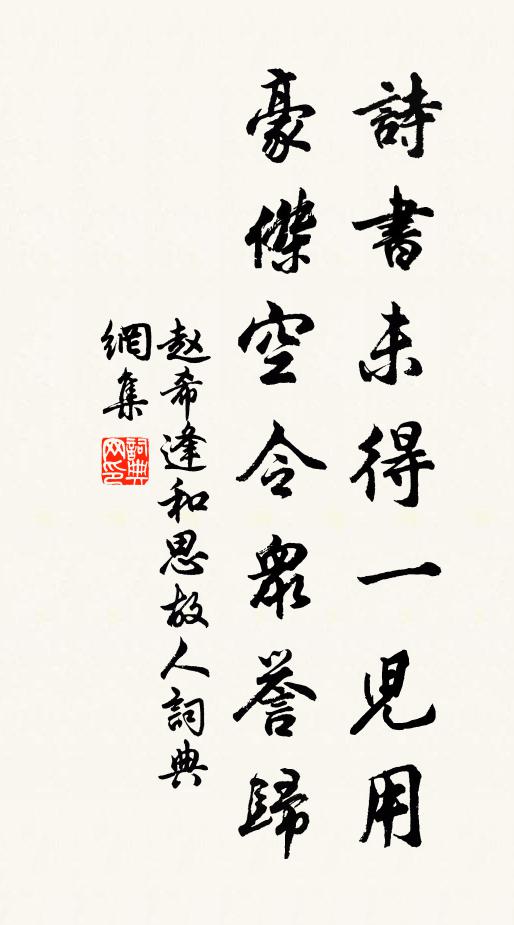 詩書未得一児用
豪傑空令衆誉歸
赵希逢和思故人詞典
網集
詞典網印